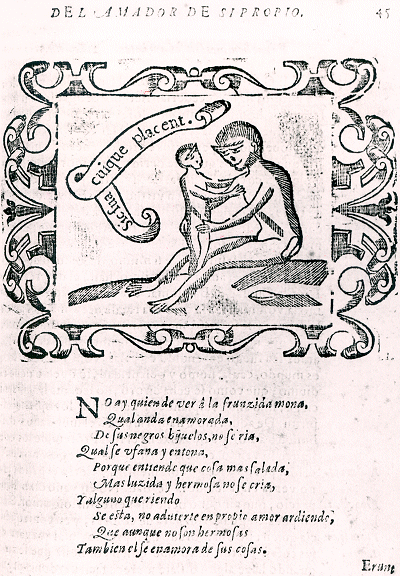 DEL AMADOR DE SI PROPIO. 45
Sic sua
cuique placent.
NO ay quien de ver â la frunzida mona,
Qual anda enamorada,
De sus negros hijuelos, no se ria,
Qual se vfana y entona,
Porque entiende que cosa mas salada,
Mas luzida y hermosa no se cria,
Y alguno queriendo
Se esta, no aduierte en propio amor ardiendo,
Que aunque no son hermosas
Tambien el se enamora de sus cosas.